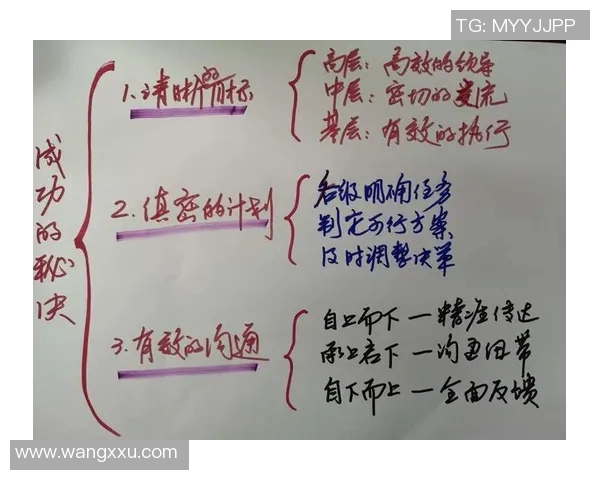 TG: MYYJJPP
成功的秘决
1.清晰的目标
高层：高效的领导
中层：密切的交流
基层：有效的执行
2.慎密的计划
各级明确任务
判定可行方案
及时调整决策
3.有效的沟通
自上而下一精准传达
承上启下一沟通纽带
自下而上一全面反馈
www.wangxxu.com